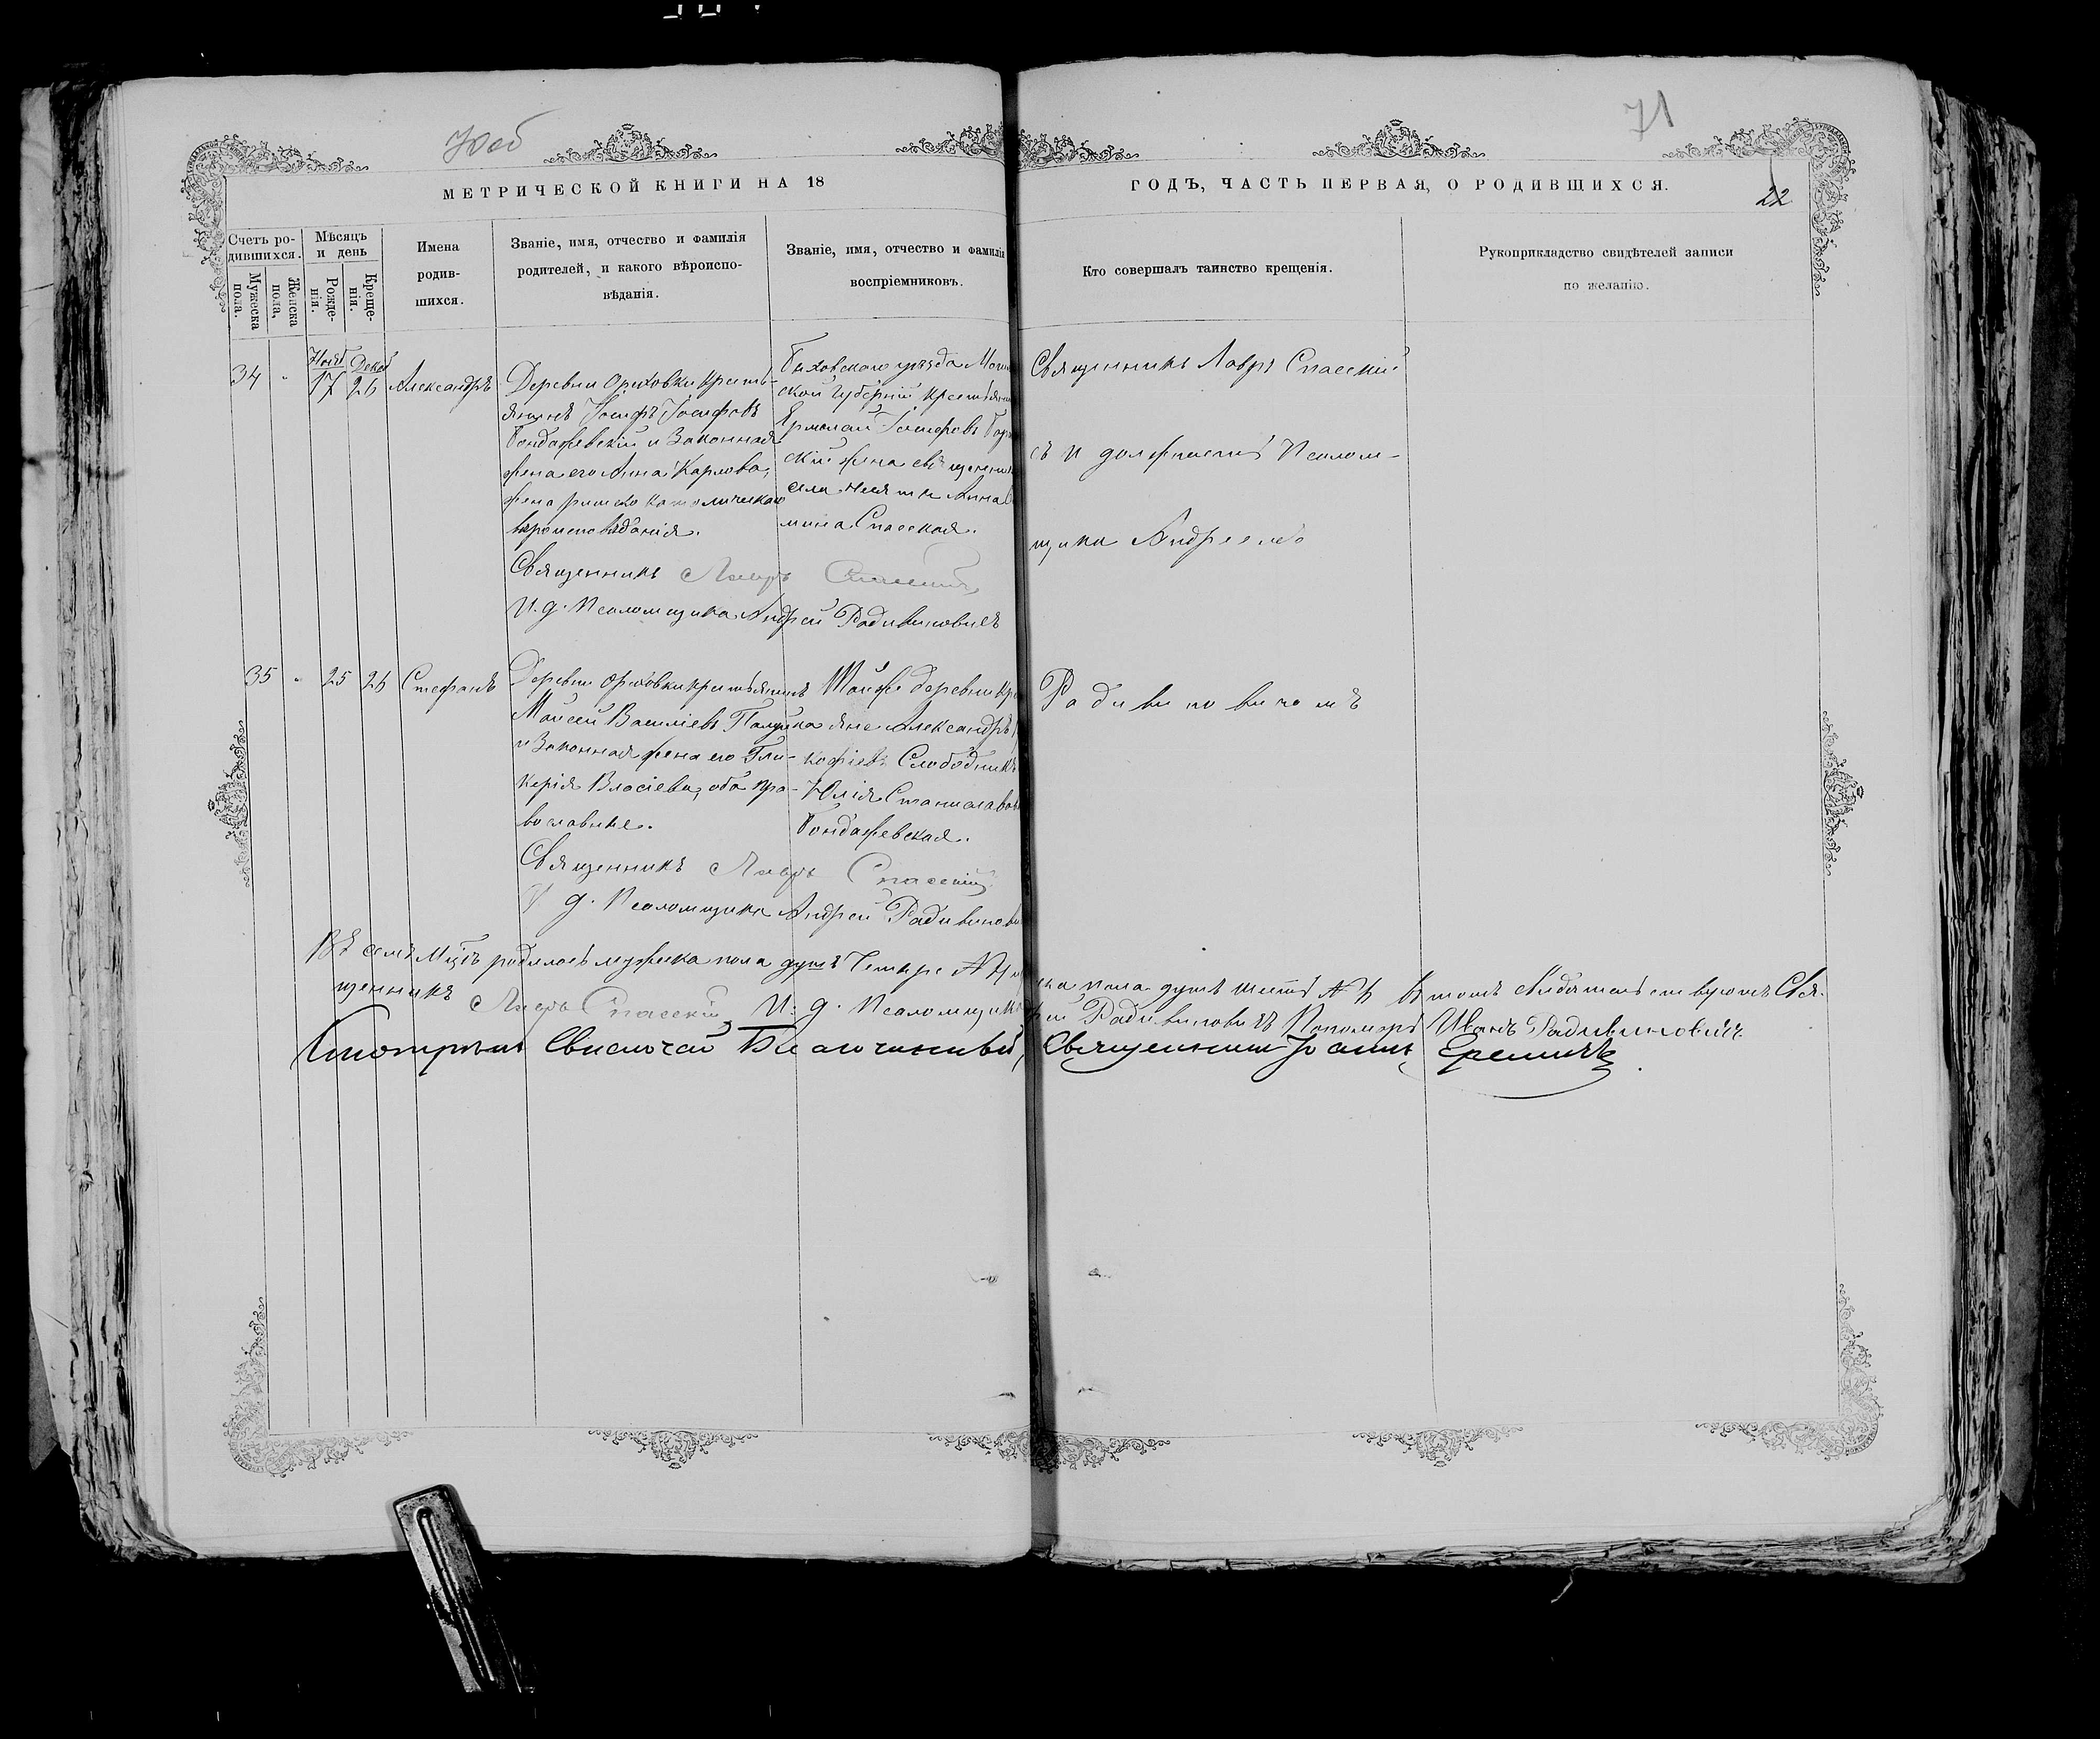 70об
71
МЕТРИЧЕСКОЙ КНИГИ НА 18
ГОДЪ, ЧАСТЬ ПЕРВАЯ, О РОДИВШИХСЯ.
22
Счетъ ро-
дившихся.
Мужеска
пола.
Женска
пола,
Мѣсяцъ
и день
Рожде-
нія.
Креще-
нія.
Имена
родив-
шихся.
Званіе, имя, отчество и фамилія
родителей, и какого вѣроиспо-
вѣданія.
Званіе, имя, отчество и фамилія
воспріемниковъ.
Кто совершалъ таинство крещенія.
Рукоприкладство свидѣтелей записи
по желанію.
34 - Нояб 17 Декаб 26 Александръ
Деревни Ориховки кресть-
янинъ Іосифъ Іосифовъ
Бондажевскій и Законная
жена его Анна Карлова,
жена римско католическаго
вѣроисповѣданія.
Священникъ Лавръ Спасскій
И. д. Псаломщика Андрей Радивиновичъ
Быховского уѣзда
ской губерніи
Ермолай Іосифовъ
скій жена
села Анна
мина Спасская.
Священникъ Лавръ Спасскій
съ и должность Псалом-
щика Андреемъ
Радивиновичемъ
35 - 25 26 Стефанъ
Деревни Ориховки крестьянинъ
Моисей Василіевъ
и Законная жена его Гли-
керія Власіева, оба пра-
вославные.
Священникъ Лавръ Спасскій
И д. Псаломщика Андрей
Тойже деревни
яне Александръ
кофіевъ Слободникъ
Юлія Станиславова
Бондажевская.
Въ семъ Мцѣ родилось мужеска пола душъ Четыре № 4
ска пола душъ шесть № 6 въ томъ свидѣтельствуютъ Свя-
щенникъ Лавръ Спасскій И. д. Псаломщика
Радивиновичъ Пономарь Иванъ Радивиновичъ
Благочинный, Священникъ Іоаннъ